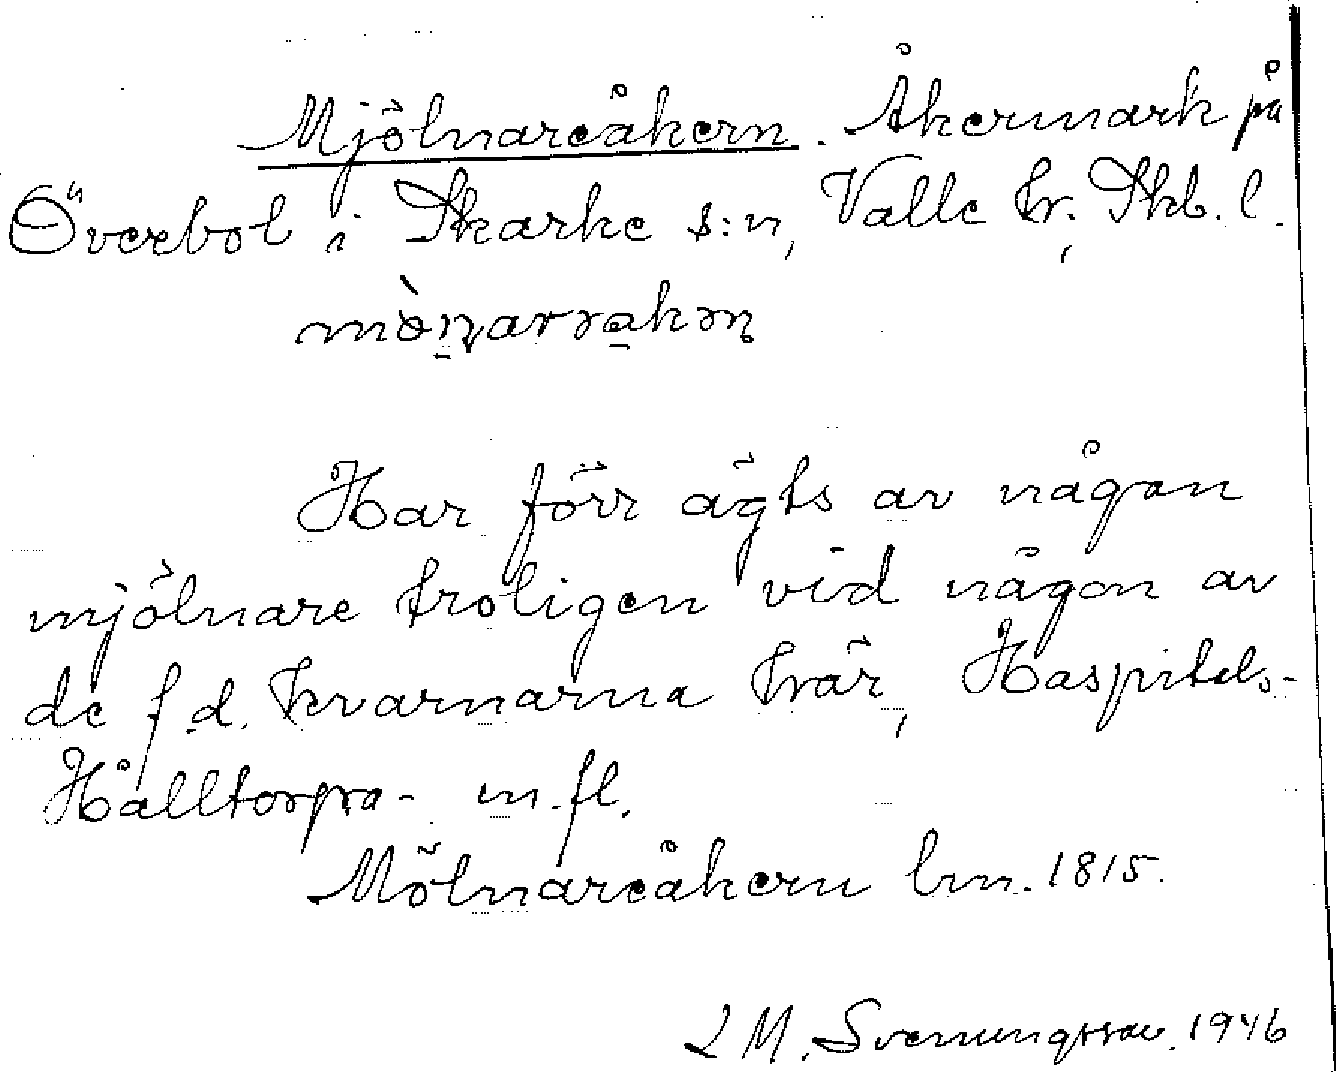 Mjölnareåkern. Åkermark på
Överbol i Skarke s:n, Valle hr, Skb. l.
Har förr ägts av någon
mjölnare troligen vid någon av
de f.d. kvarnarna Trär, Haspitels-
Hålltorpa- m.fl.
Mölnareåkern lm. 1815.
L M. Svenungsson. 1946